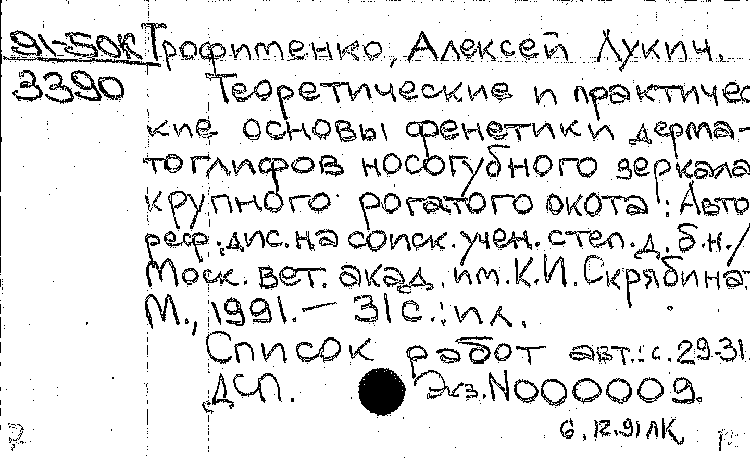 91-50К Трофименко, Алексей Лукич.
3390 Теоретические и практичес
кие основы фенетики дерма-
тоглифов носогубного зеркала
крупного рогатого скота : Авто
реф. дис. на соиск. учен. степ. д. б. н. /
Моск. вет. акад. им. К.И. Скрябина.
М., 1991. — 31 с. : ил.
Список работ авт.: с. 29-31.
ДСП. Экз. N000009.
6.12.91 ЛК